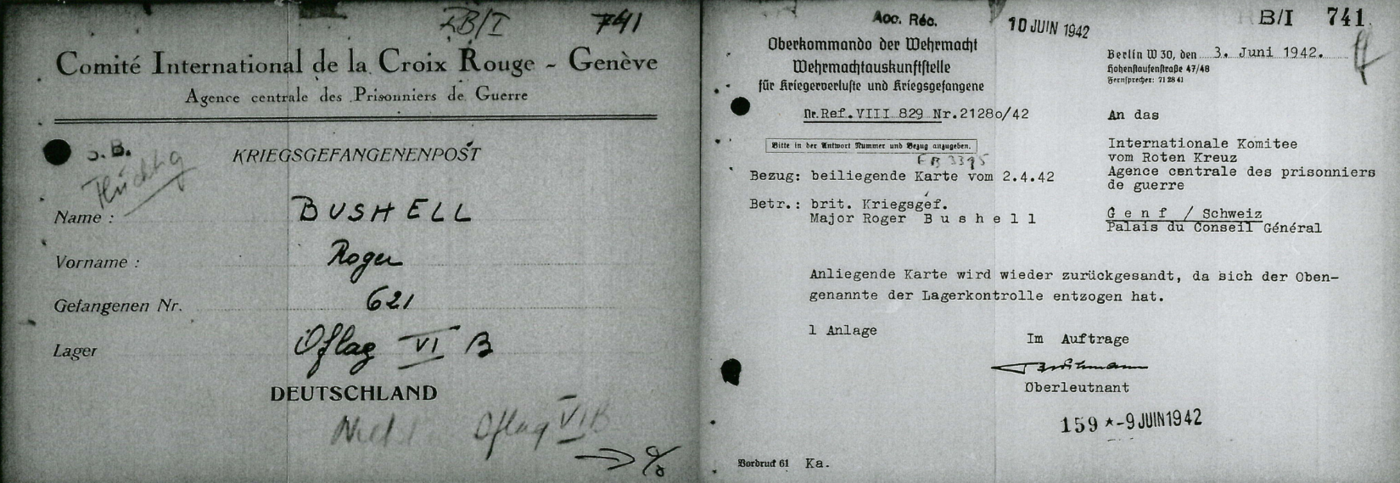 B/I 741
Comité International de la Croix Rouge - Genève
Agence centrale des Prisonniers de Guerre
KRIEGSGEFANGENENPOST
s.B.
flüchtig
Name : BUSHELL
Vorname : Roger
Gefangenen Nr. 621
Lager Oflag VI B
DEUTSCHLAND
Oflag VI B
Acc. Réc.
10 JUIN 1942
B/I 741
Oberkommando der Wehrmacht
Wehrmachtauskunftstelle
für Kriegerverluste und Kriegsgefangene
Nr.Ref.VIII 829 Nr.2128o/42
Bitte in der Antwort Nummer und Bezug anzugeben.
Berlin W 30, den 3. Juni 1942.
Hohenstaufenstraße 47/48
Fernsprecher: 71 28 41
An das
Internationale Komitee
vom Roten Kreuz
Agence centrale des prisonniers
de guerre
G e n f / Schweiz
Palais du Conseil Général
Bezug: beiliegende Karte vom 2.4.42
Betr.: brit. Kriegsgef.
Major Roger B u s h e l l
Anliegende Karte wird wieder zurückgesandt, da sich der Oben-
genannte der Lagerkontrolle entzogen hat.
1 Anlage
Im Auftrage
Oberleutnant
159 * -9 JUIN 1942
Vordruck 61 Ka.